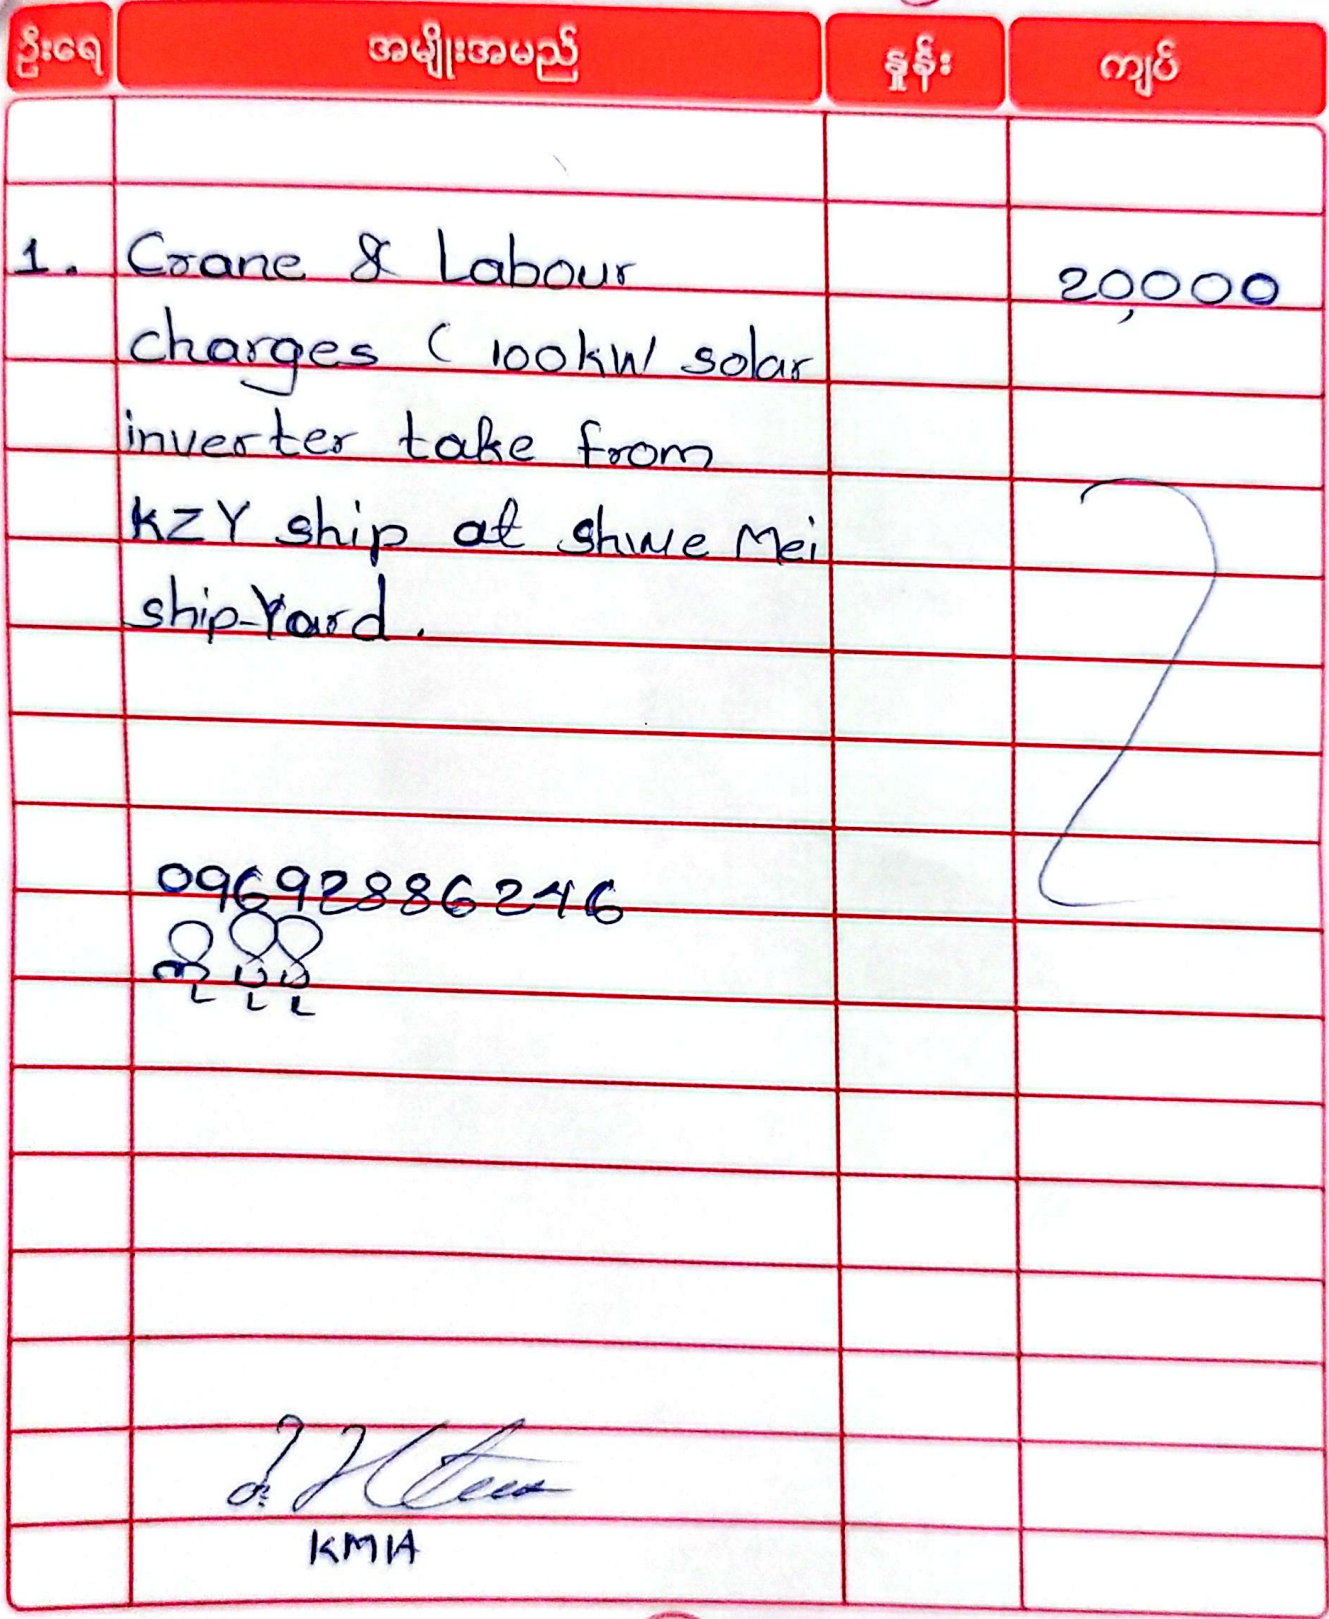 ဦးရေ အမျိုးအမည် နှုန်း ကျပ်
1. Crane & Labour 20,000
charges ( 100kW solar
inverter take from
KZY ship at Shwe Mei
ship-Yard.
09692886246
ကို ဖိုးဖိုး
KMIA